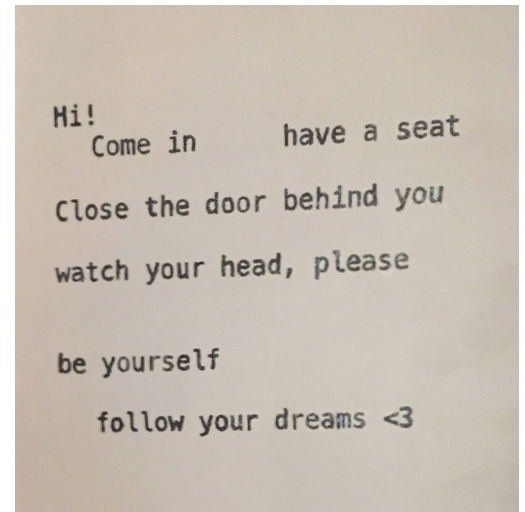 Hi!
Come in have a seat
Close the door behind you
watch your head, please
be yourself
follow your dreams <3